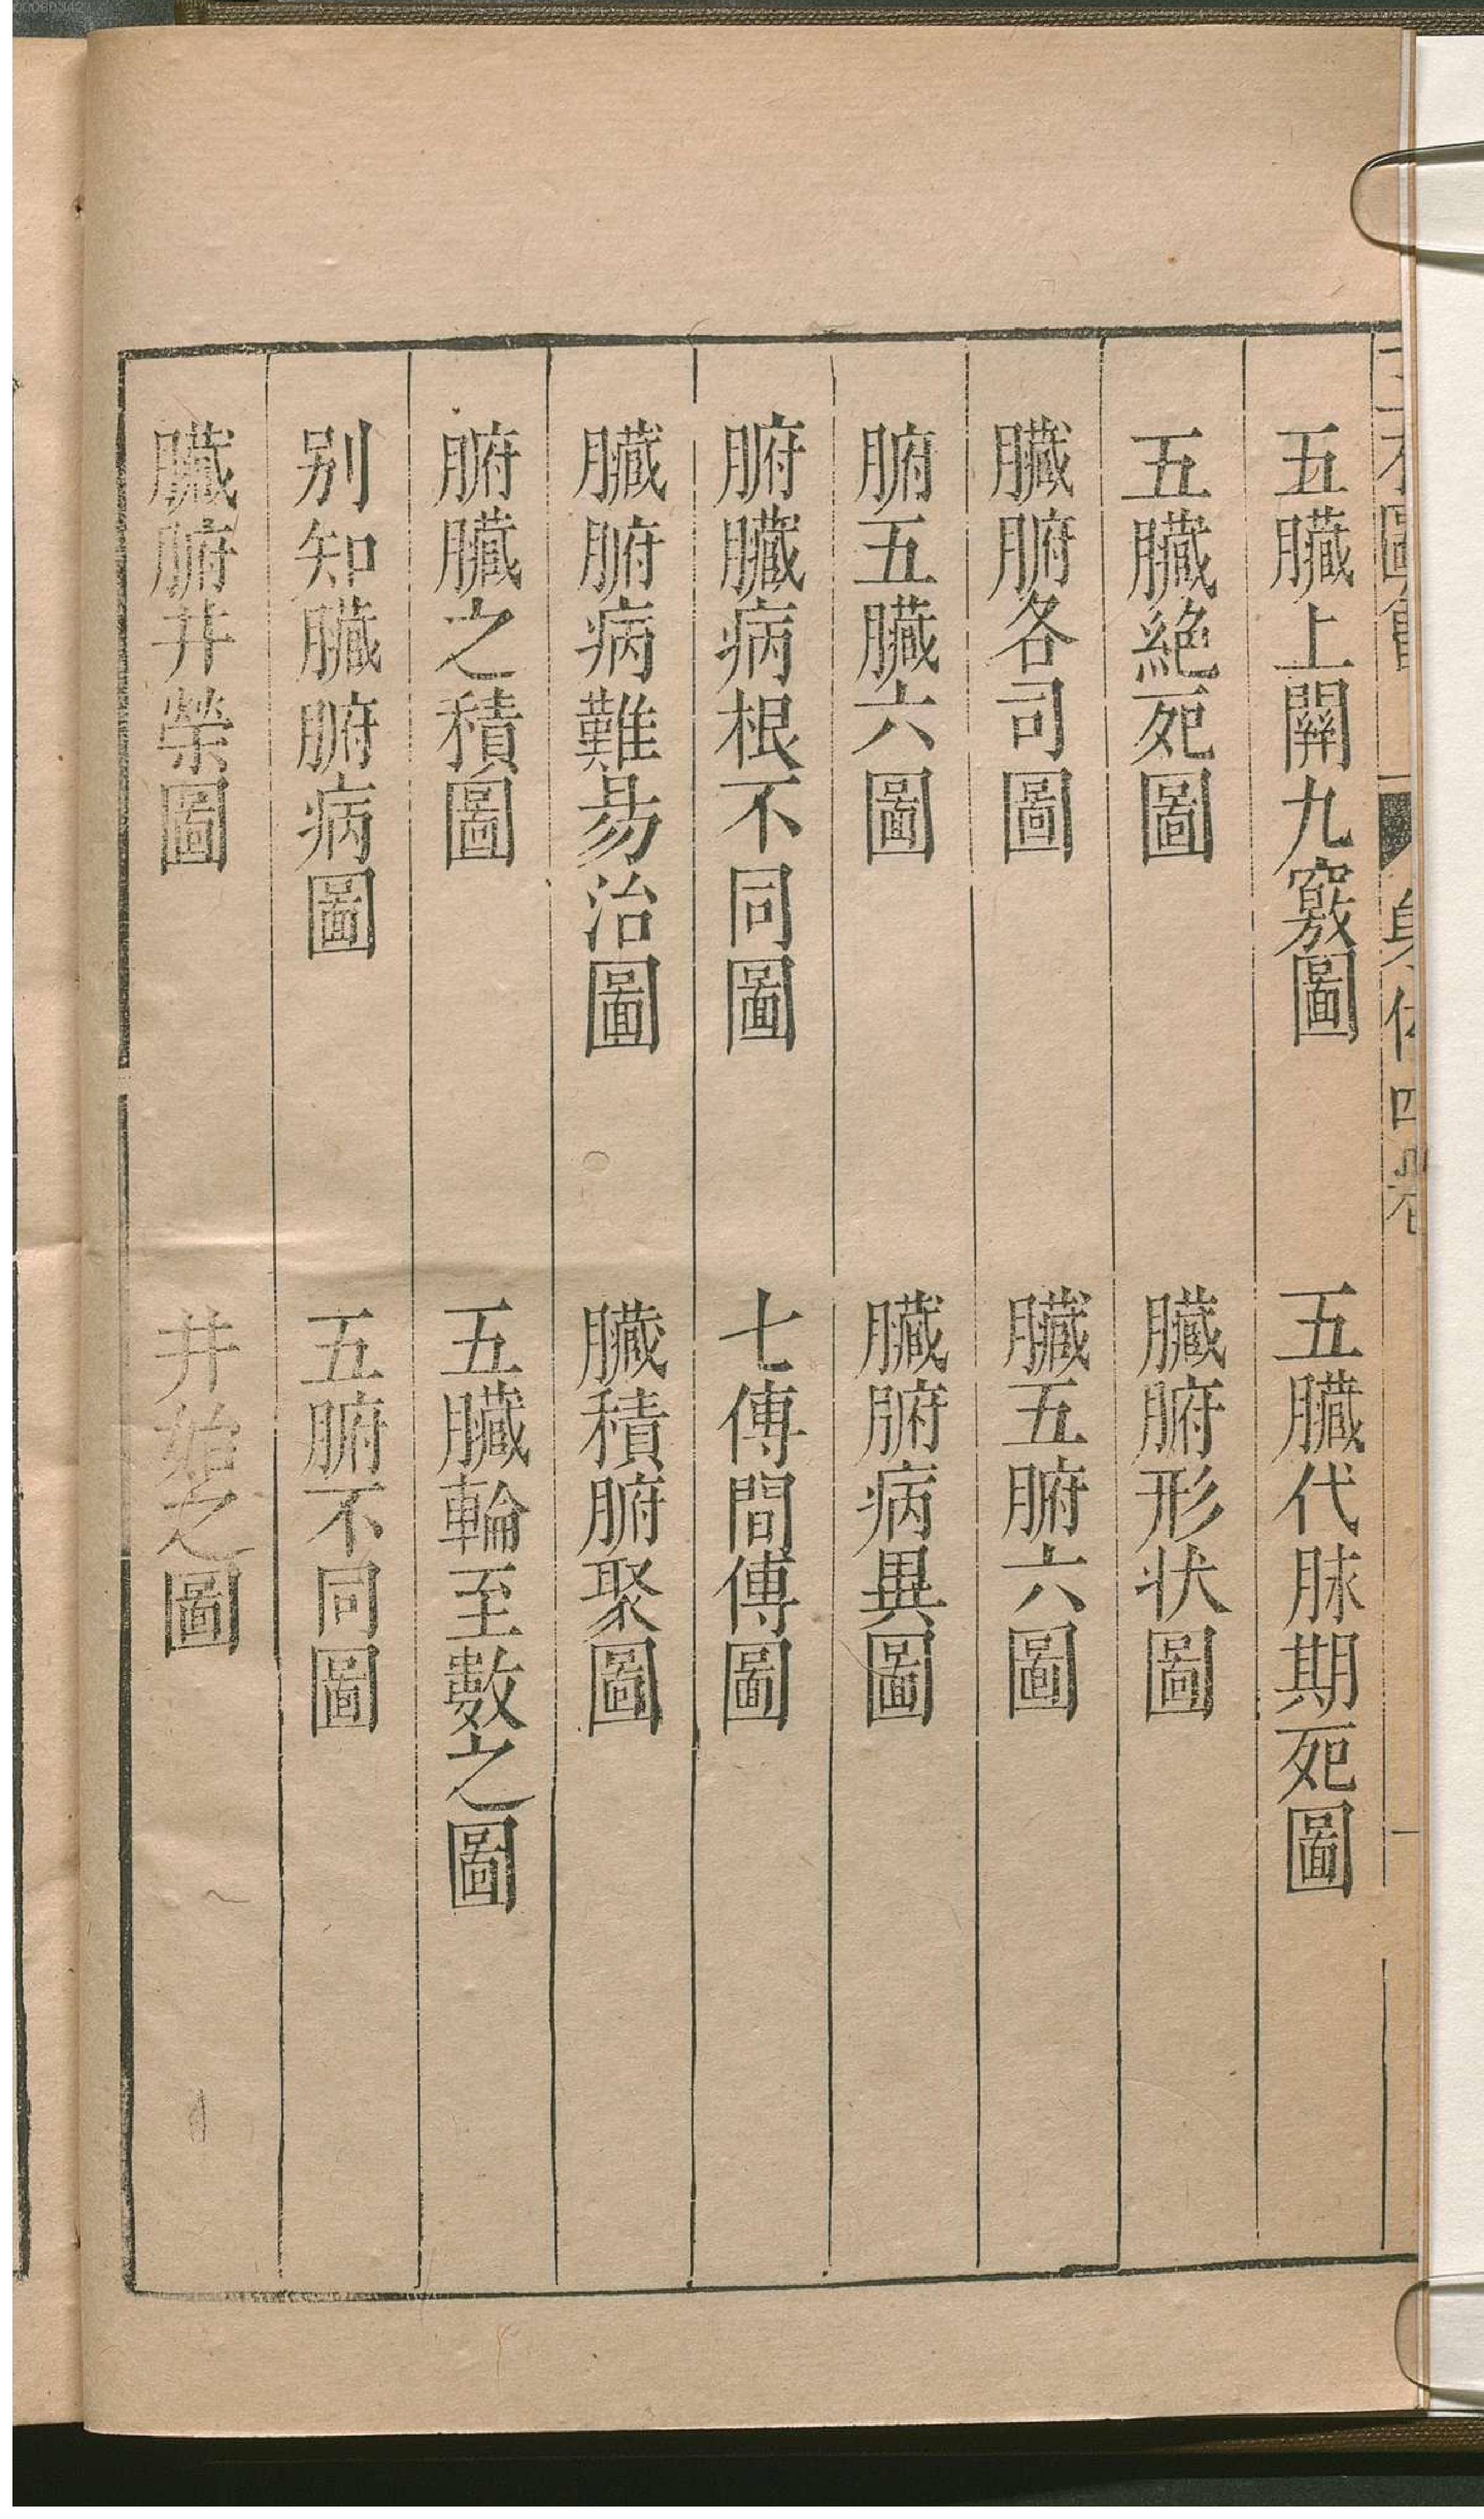 五臟上關九竅圖　五臟代脉期死圖
五臟絕死圖　臟腑形狀圖
臟腑各司圖　臟五腑六圖
腑五臟六圖　臟腑病異圖
腑臟病根不同圖　七傳間傳圖
臟腑病難易治圖　臟積腑聚圖
腑臟之積圖　五臟輪至數之圖
别知臟腑病圖　五腑不同圖
臟腑井滎圖　井始之圖